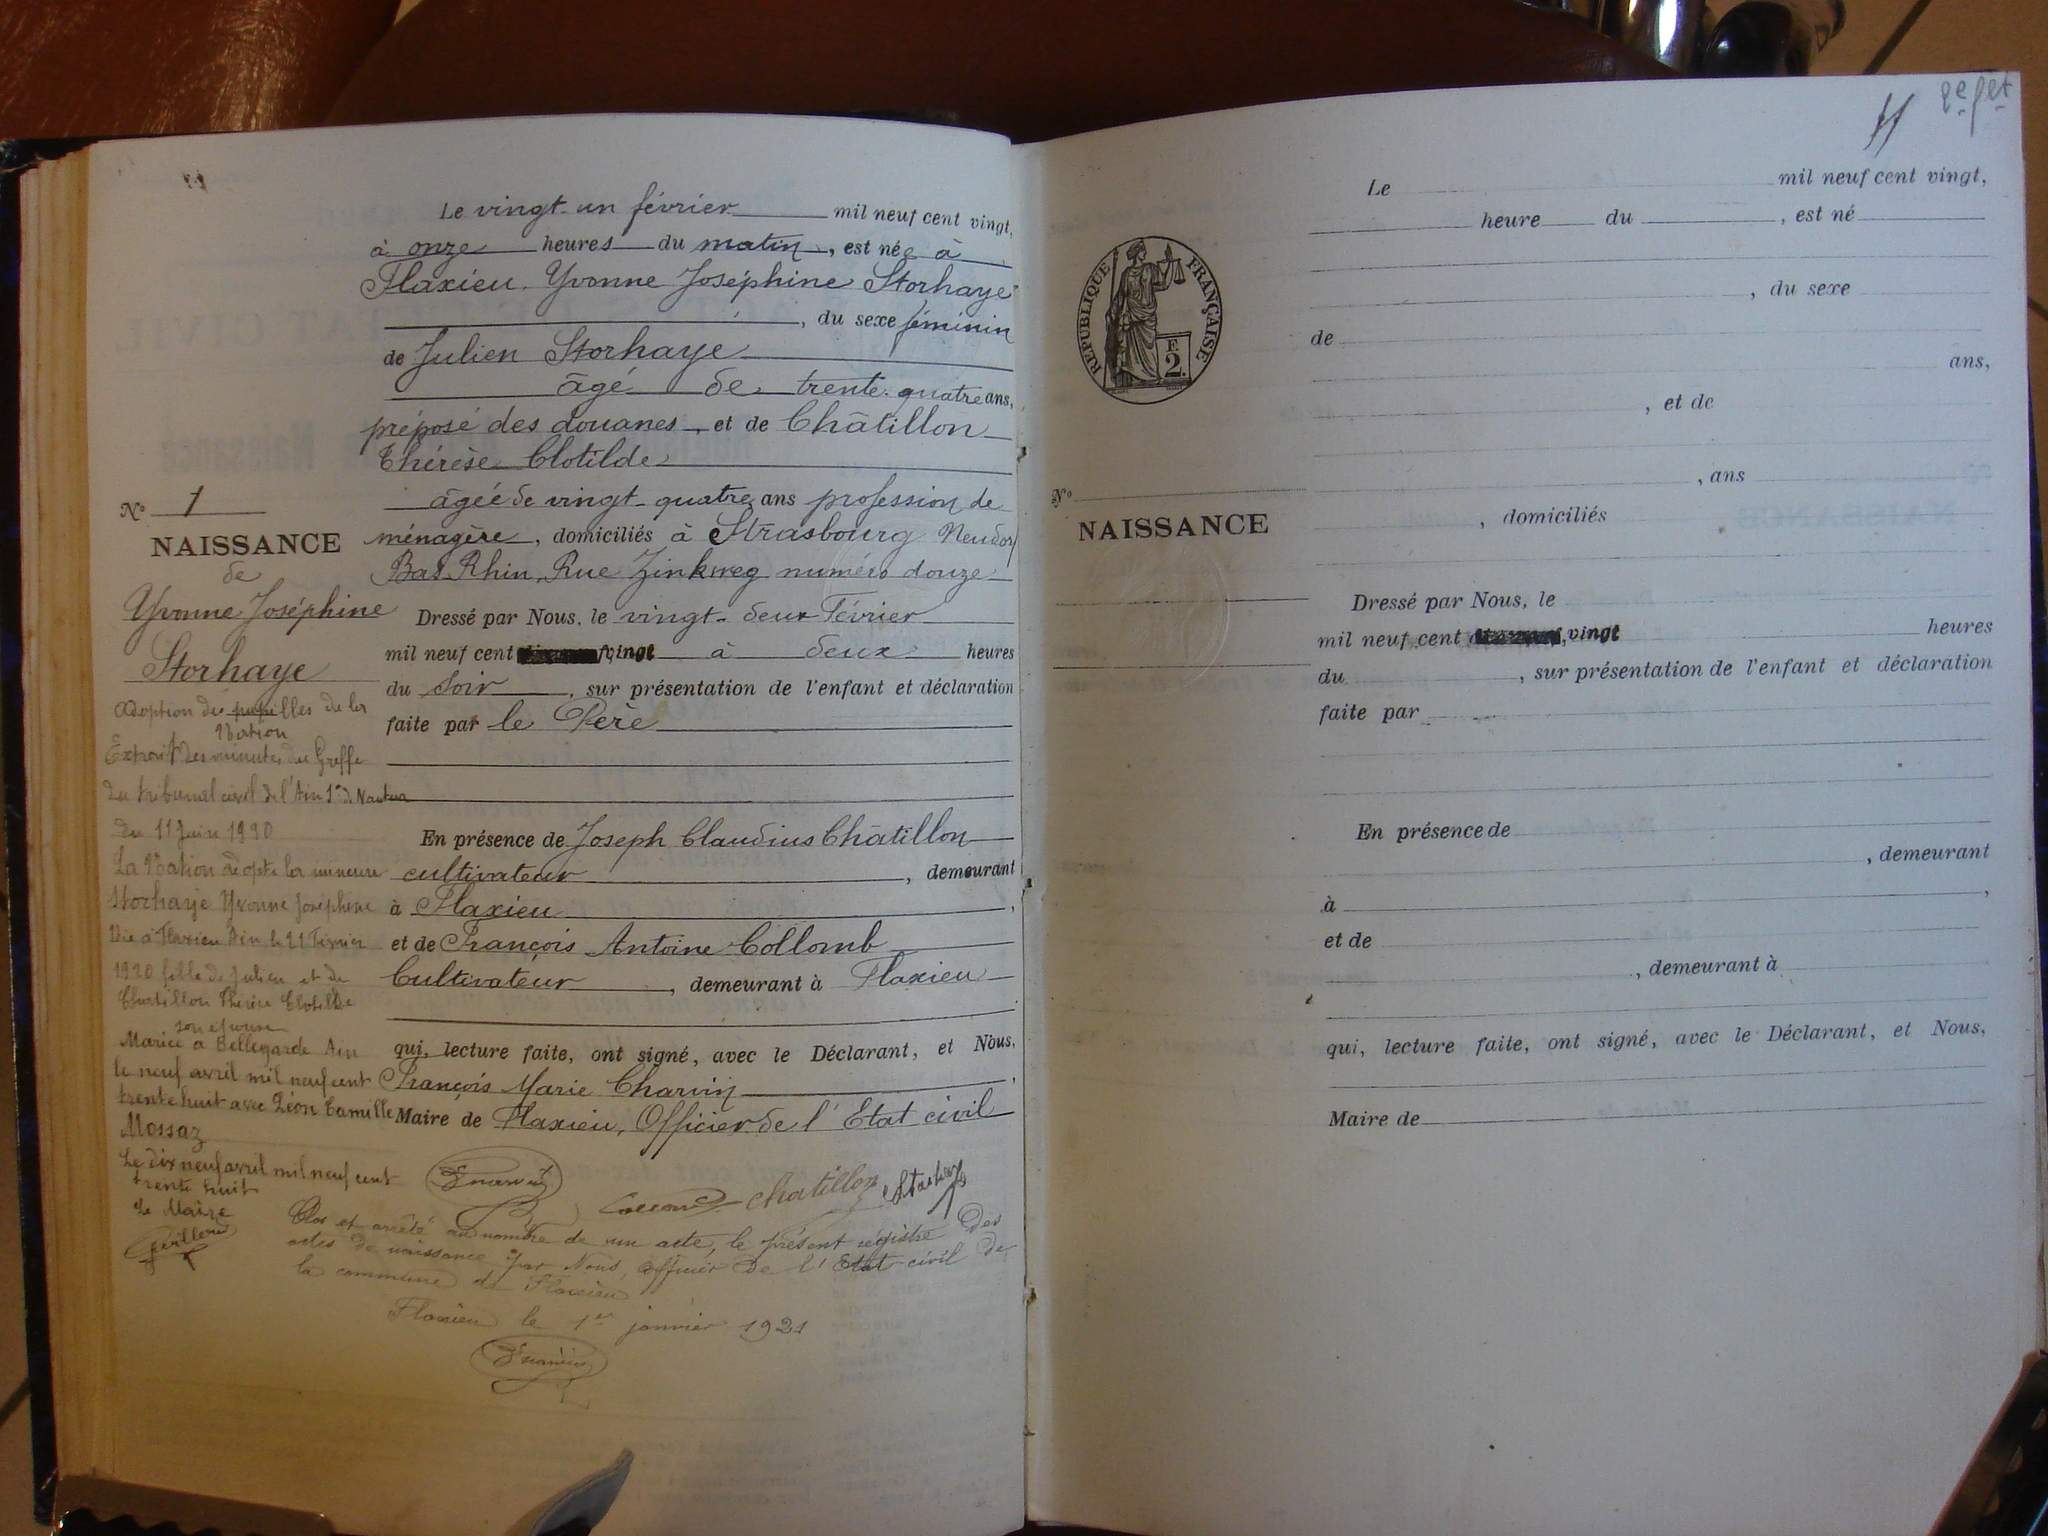 Le vingt-un février mil neuf cent vingt,
à onze heures du matin, est née à
Flaxieu. Yvonne Joséphine Storhaye
, du sexe féminin
de Julien Storhaye
âgé de trente-quatre ans,
préposé des douanes, et de Châtillon
Thérèse Clotilde
âgée de vingt-quatre ans profession de
ménagère, domiciliés à Strasbourg Neudorf
Bas-Rhin, Rue Zinkweg numéro douze
Dressé par Nous, le vingt-deux Février
mil neuf cent vingt à deux heures
du soir, sur présentation de l'enfant et déclaration
faite par le Père
En présence de Joseph Claudius Châtillon
cultivateur, demeurant
à Flaxieu,
et de François Antoine Collomb
Cultivateur, demeurant à Flaxieu
qui, lecture faite, ont signé, avec le Déclarant, et Nous,
François Marie Charvin,
Maire de Flaxieu, Officier de l'Etat civil
Chatillon
Clos et arrêté au nombre de un acte, le présent registre des
actes de naissance par Nous, officier de l'Etat civil de
la commune de Flaxieu
Flaxieu le 1er janvier 1921
No 1
NAISSANCE
de
Yvonne Joséphine
Storhaye
Adoption des pupilles de la
Nation
Extrait des minutes du Greffe
du tribunal civil de l'Ain
du 11 Juin 1930
La Nation adopte la mineure
Storhaye Yvonne Joséphine
Née à Flaxieu Ain le 21 Février
1920 fille de Julien et de
Chatillon Thérèse Clotilde
son épouse
Mariée à Bellegarde Ain
le neuf avril mil neuf cent
trente huit avec Léon Camille
Mossaz
Le dix neuf avril mil neuf cent
trente huit
Le Maire
2e fet
RÉPUBLIQUE FRANÇAISE
F.
2.
No
NAISSANCE
Le mil neuf cent vingt,
heure du , est né
, du sexe
de
ans,
, et de
, ans
, domiciliés
Dressé par Nous, le
mil neuf cent vingt heures
du , sur présentation de l'enfant et déclaration
faite par
En présence de
, demeurant
à ,
et de
, demeurant à
qui, lecture faite, ont signé, avec le Déclarant, et Nous,
Maire de